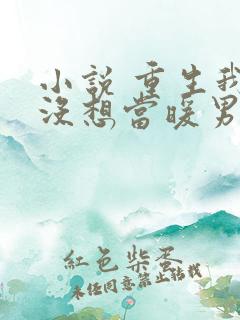 小說 重生我
沒想當暖男
紅色柴蛋
未經同意禁止轉載